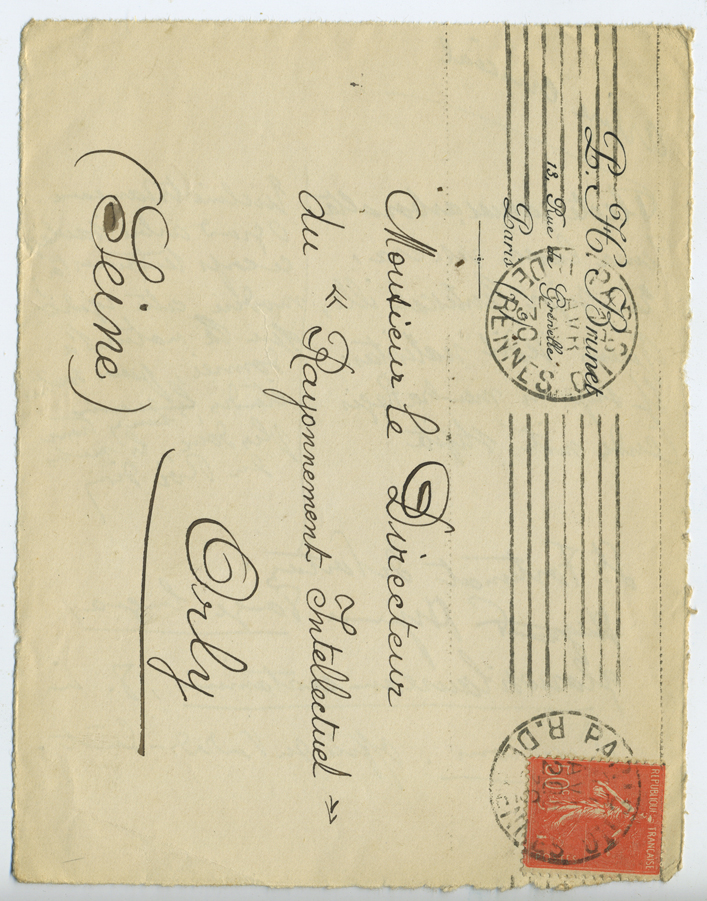 P. H. Brunet
13, Rue de Grenelle
Paris
PARIS
AVR
30
R. DE RENNES
PARIS
R. DE RENNES
REPUBLIQUE FRANÇAISE
50c
Monsieur le Directeur
du " Rayonnement Intellectuel "
Orly
(Seine)